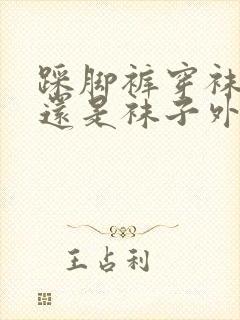 踩脚裤穿袜
還是袜子外
王占利